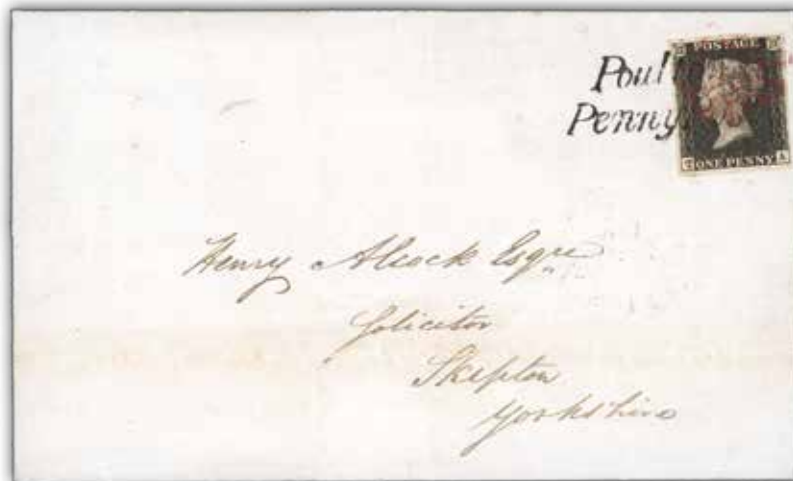 Poul
Penny
POSTAGE
ONE PENNY
Henry Alcock Esqre
Solicitor
Skipton
Yorkshire